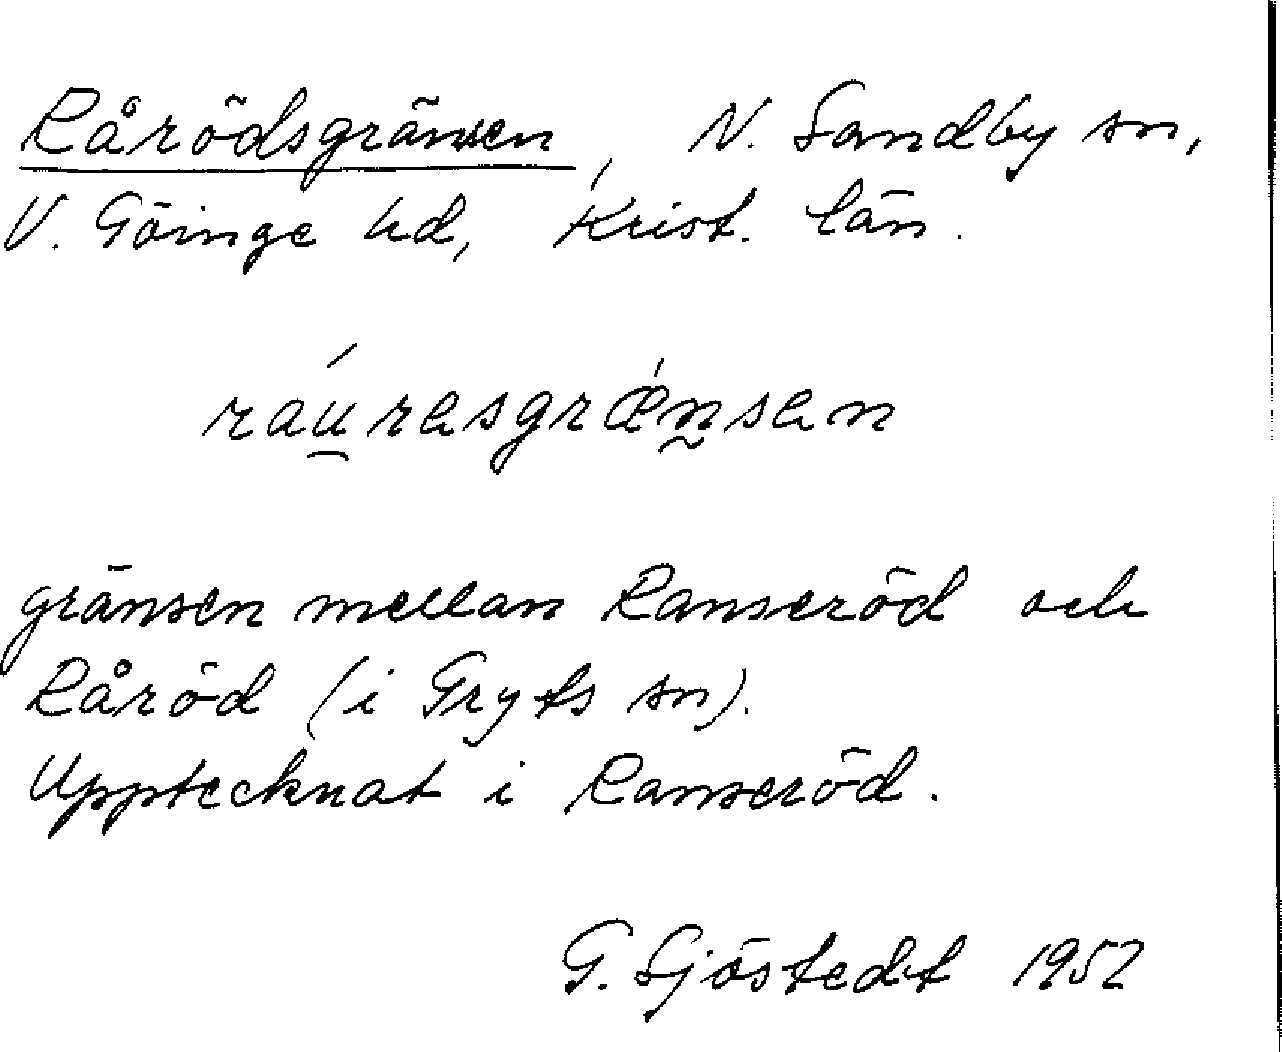 Rårödsgränsen, N. Sandby sn,
V. Göinge hd, Krist. län.
ráu̯rasgrǽn̰san
gränsen mellan Ranseröd och
Råröd (i Gryts sn).
Upptecknat i Ranseröd.
G. Sjöstedt 1952